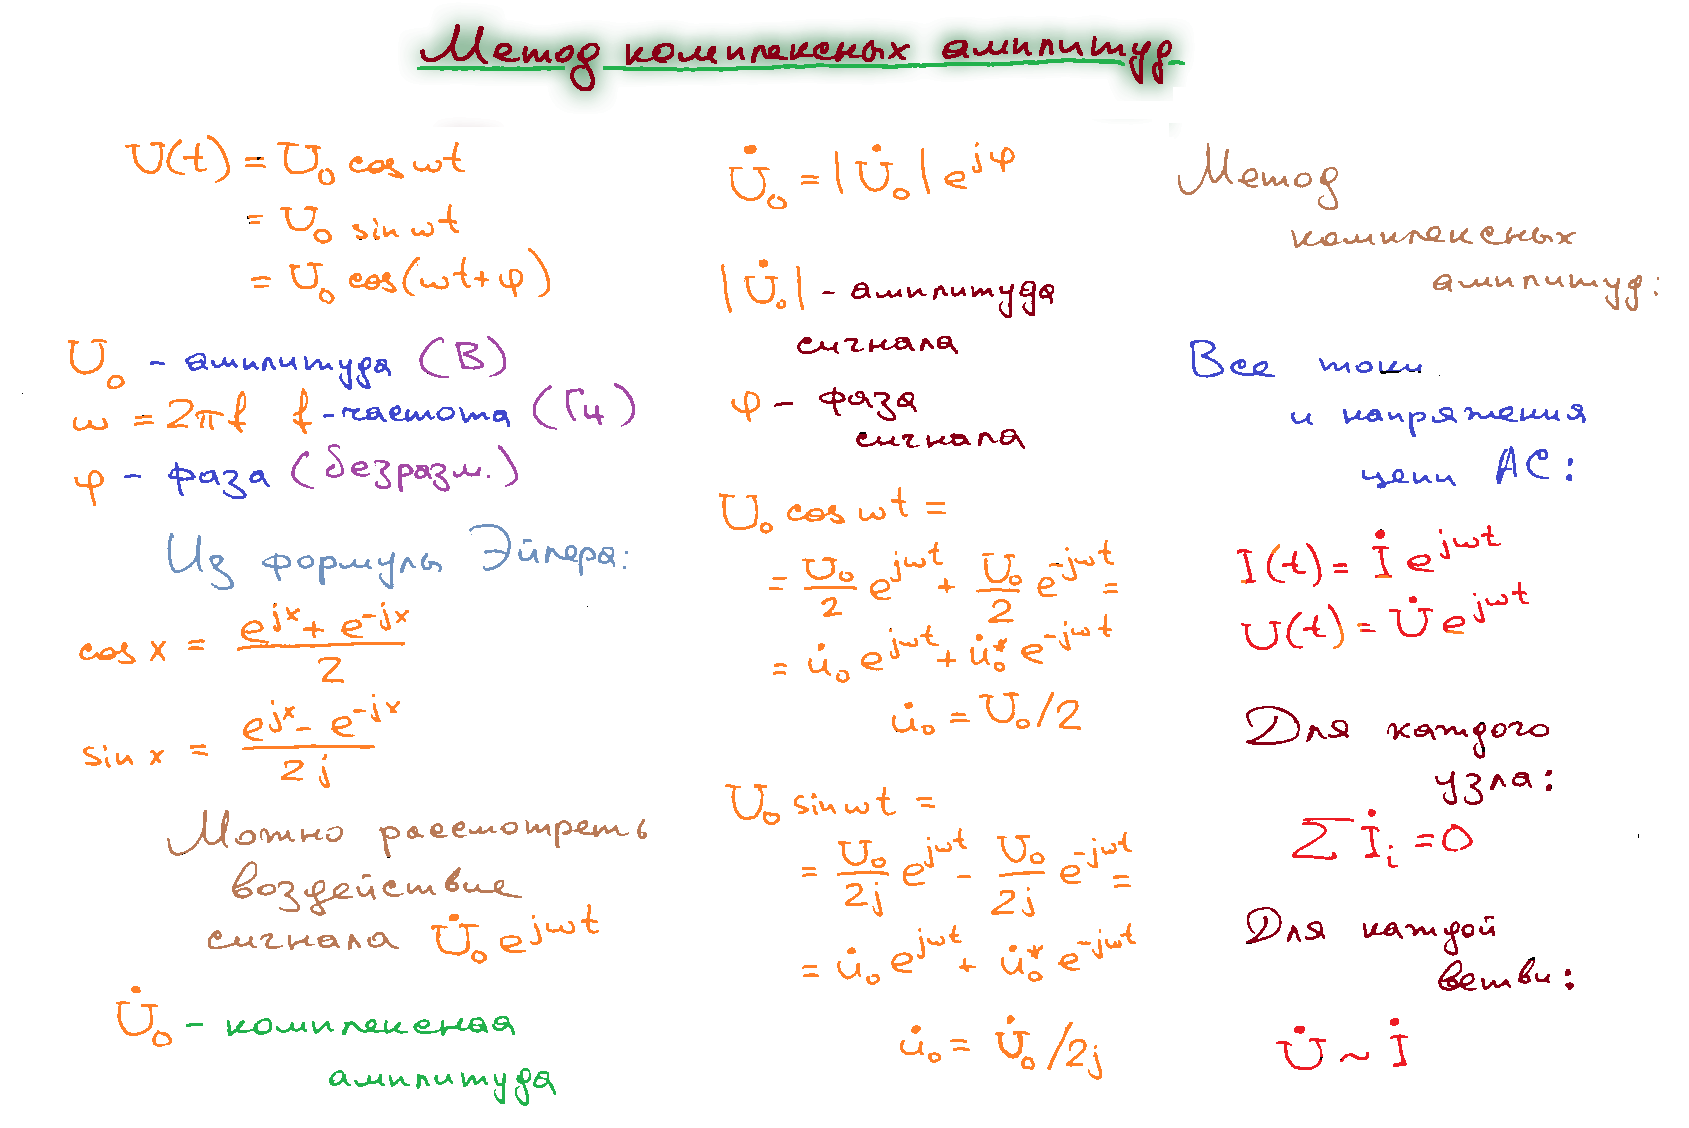 Метод комплексных амплитуд
U(t) = U₀ cos ωt
= U₀ sin ωt
= U₀ cos(ωt+φ)
U₀ - амплитуда (В)
ω = 2πf f-частота (Гц)
φ - фаза (безразм.)
Из формулы Эйлера:
cos x = (e^{jx} + e^{-jx})/2
sin x = (e^{jx} - e^{-jx})/2j
Можно рассмотреть
воздействие
сигнала U̇₀ e^{jωt}
U̇₀ - комплексная
амплитуда
U̇₀ = |U̇₀| e^{jφ}
|U̇₀| - амплитуда
сигнала
φ - фаза
сигнала
U₀ cos ωt =
= U₀/2 e^{jωt} + U₀/2 e^{-jωt} =
= u̇₀ e^{jωt} + u̇₀* e^{-jωt}
u̇₀ = U₀/2
U₀ sin ωt =
= U₀/2j e^{jωt} - U₀/2j e^{-jωt} =
= u̇₀ e^{jωt} + u̇₀* e^{-jωt}
u̇₀ = U̇₀/2j
Метод
комплексных
амплитуд:
Все токи
и напряжения
цепи AC:
I(t) = İ e^{jωt}
U(t) = U̇ e^{jωt}
Для каждого
узла:
Σ İᵢ = 0
Для каждой
ветви:
U̇ ~ İ